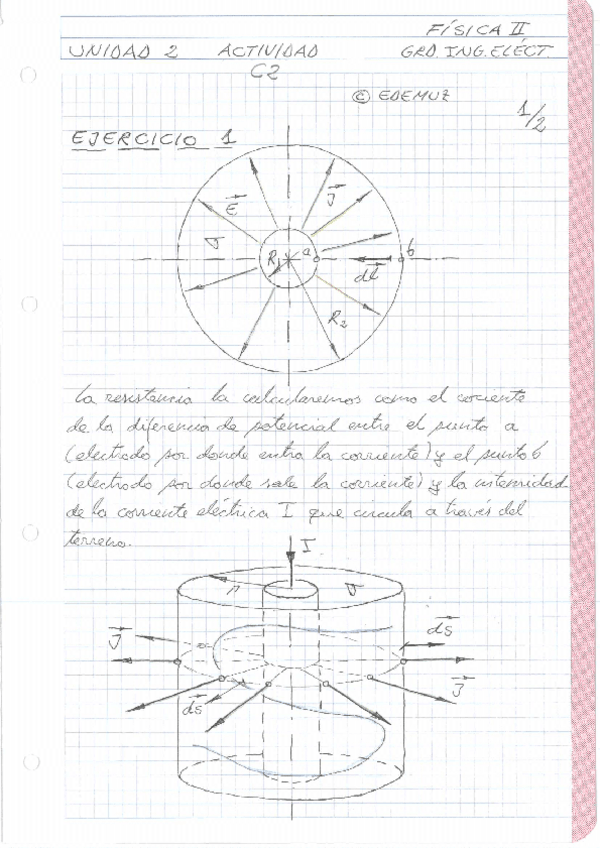 FÍSICA II
UNIDAD 2 ACTIVIDAD GRD. ING. ELÉCT.
C2
© EDEMUZ
1/2
EJERCICIO 1
E J
σ R1 a b
dl
R2
La resistencia la calcularemos como el cociente
de la diferencia de potencial entre el punto a
(electrodo por donde entra la corriente) y el punto b
(electrodo por donde sale la corriente) y la intensidad
de la corriente eléctrica I que circula a través del
terreno.
I
r σ
J dS
dS J